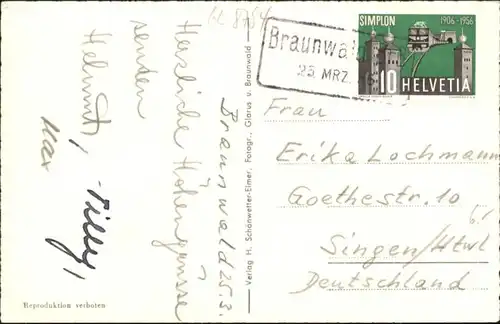 GL 8784
Braunwald 25.3.
Herzliche Höhengrüsse
senden
Helmut,
Max
- Tilly,
Reproduktion verboten
Verlag H. Schönwetter-Elmer, Fotogr., Glarus u. Braunwald
Braunwald
25. MRZ.
SIMPLON 1906-1956
10 HELVETIA
Frau
Erika Lochmann
Goethestr. 10
Singen/Htwl
Deutschland